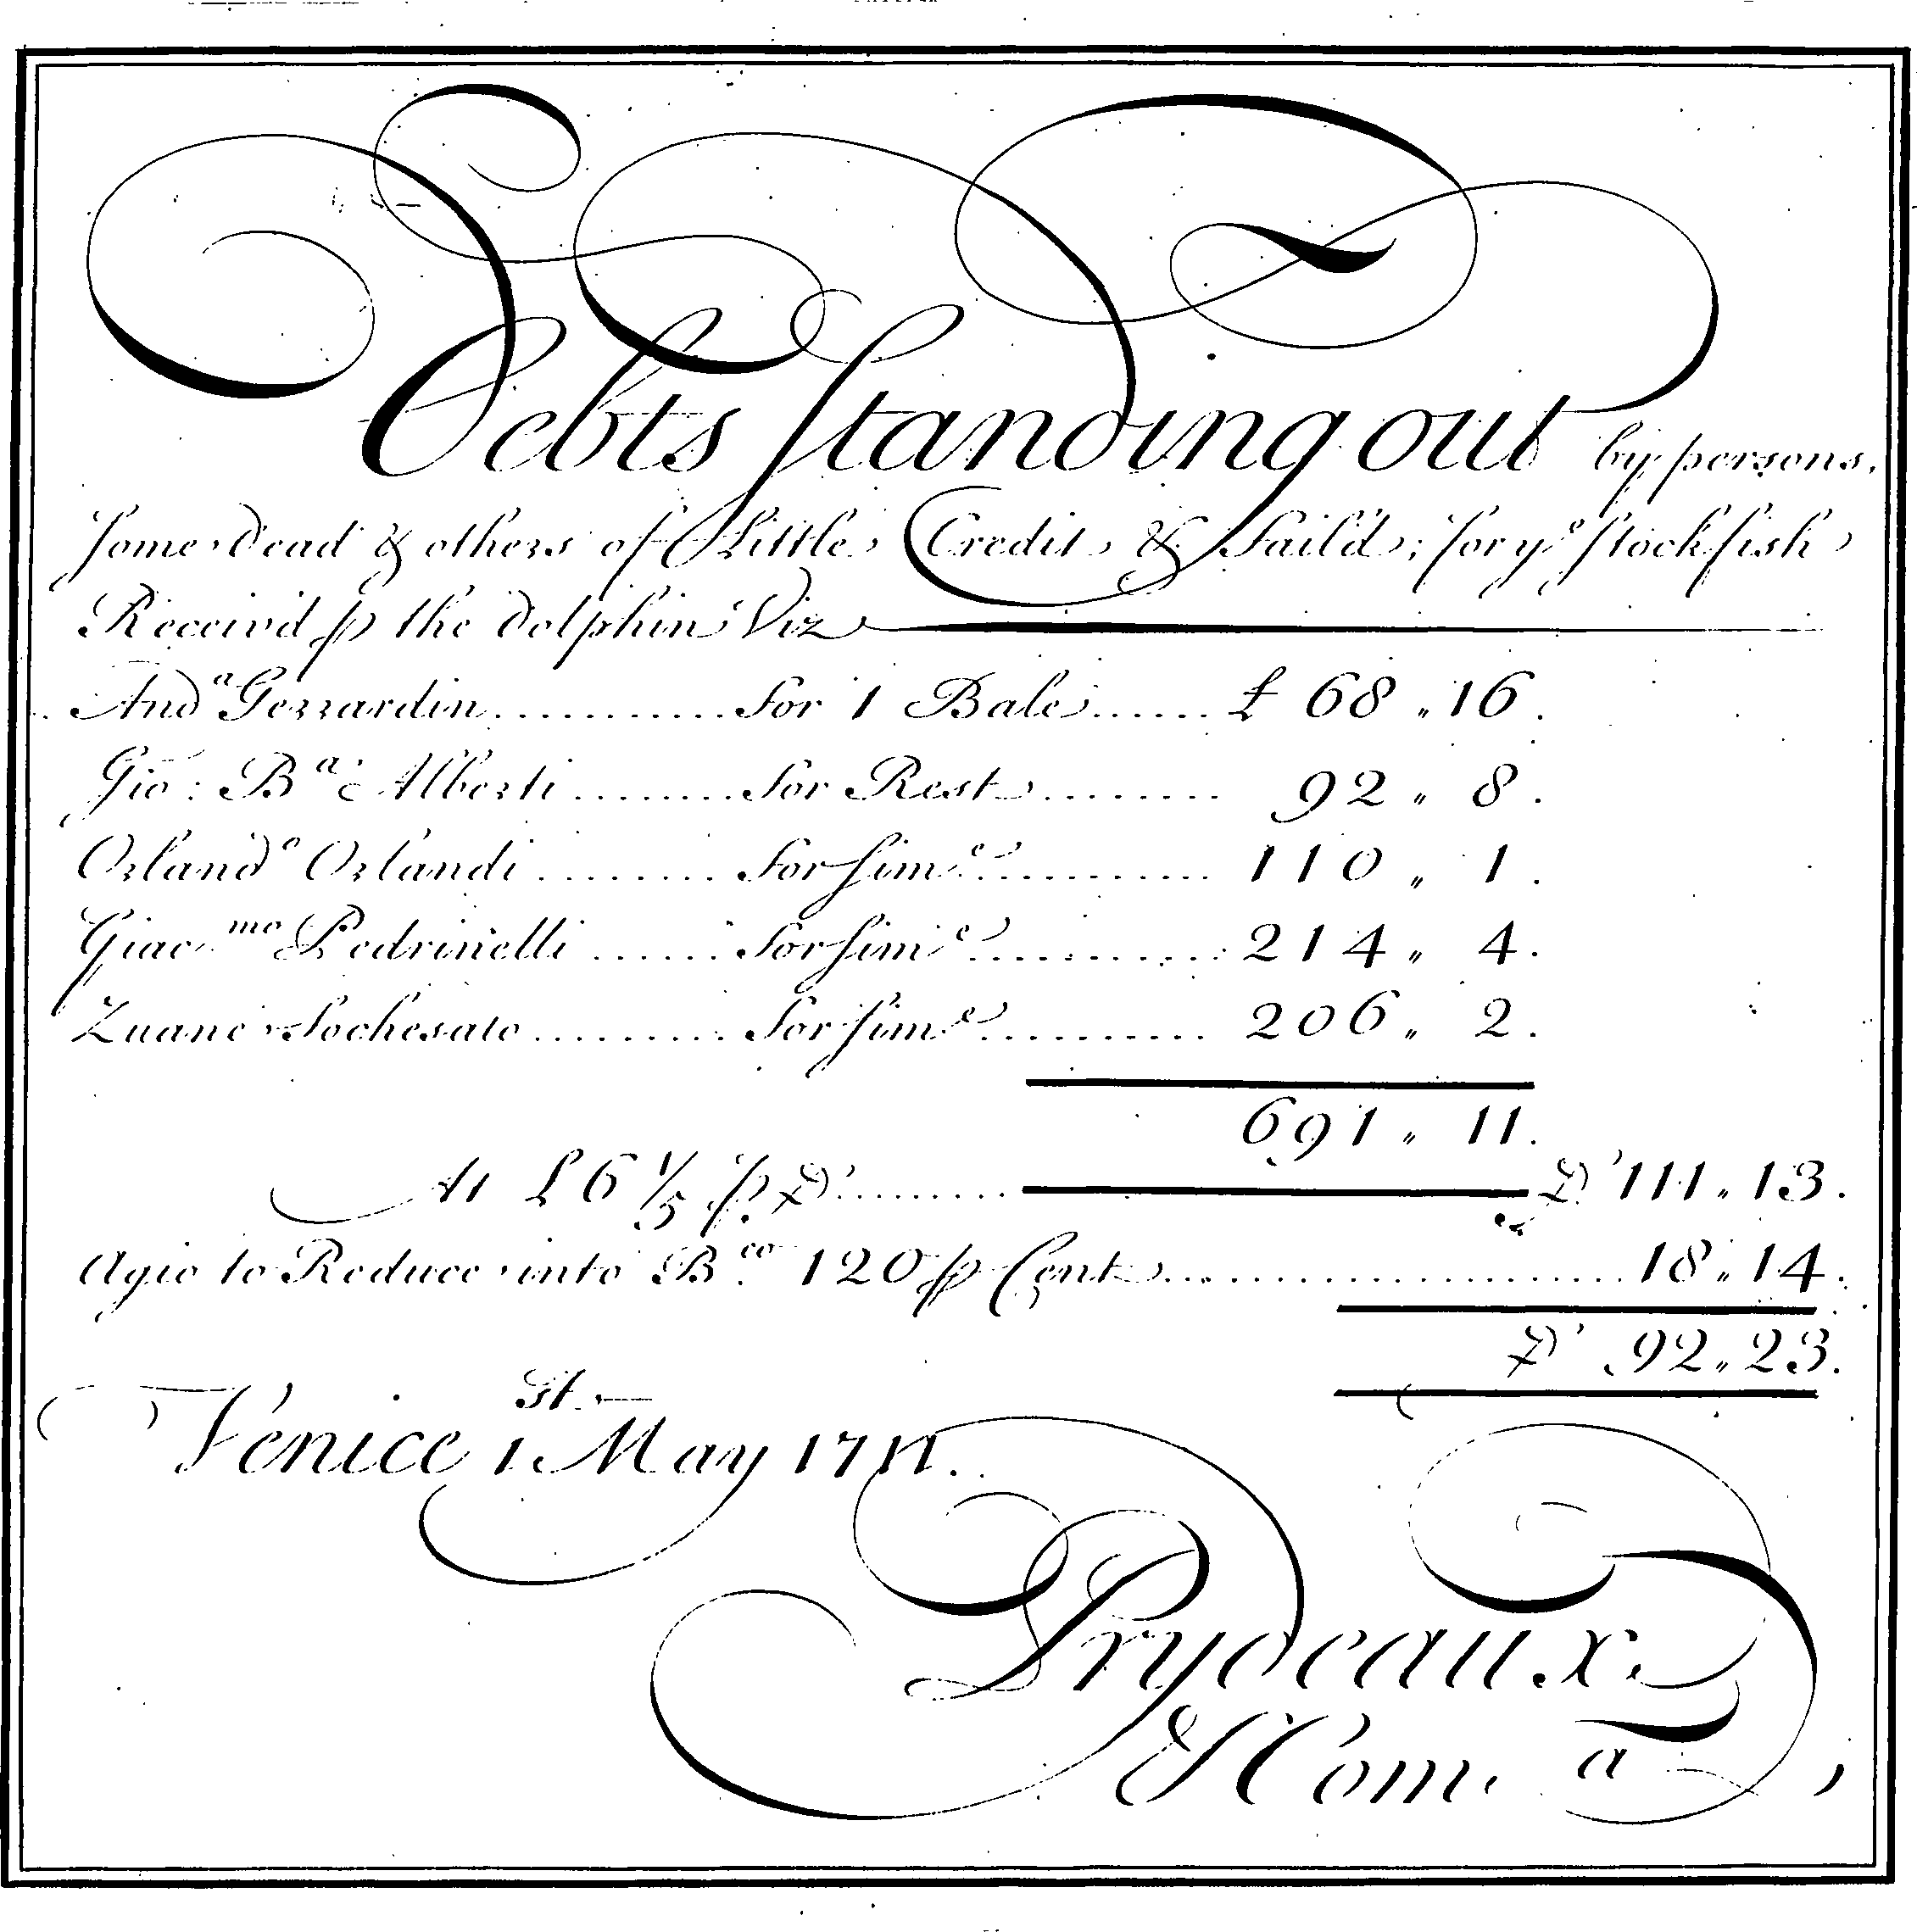 Debts Standing out by persons,
some dead & others of Little Credit & Fail'd; for yᵉ Stockfish
Receiv'd ꝑ the dolphin Viz
Andᵃ Gezzardin............for 1 Bale......£ 68 " 16.
Gio: Bᵃ: Alberti........for Rest........ 92 " 8.
Orlandᵒ Orlandi........for simᵉ........... 110 " 1.
Giacᵐᵒ Pedrinelli......for simᵉ............ 214 " 4.
Zuane Sochesato.........for simᵉ.......... 206 " 2.
691 " 11.
At £ 6 1/5 ꝑ. D'.......... D' 111 " 13.
Agio to Reduce into Bᶜᵒ 120 ꝑ Cent....................... 18 " 14.
D' 92 " 23.
Venice 1ˢᵗ May 1711.
Prydeaux
& Comᵃ